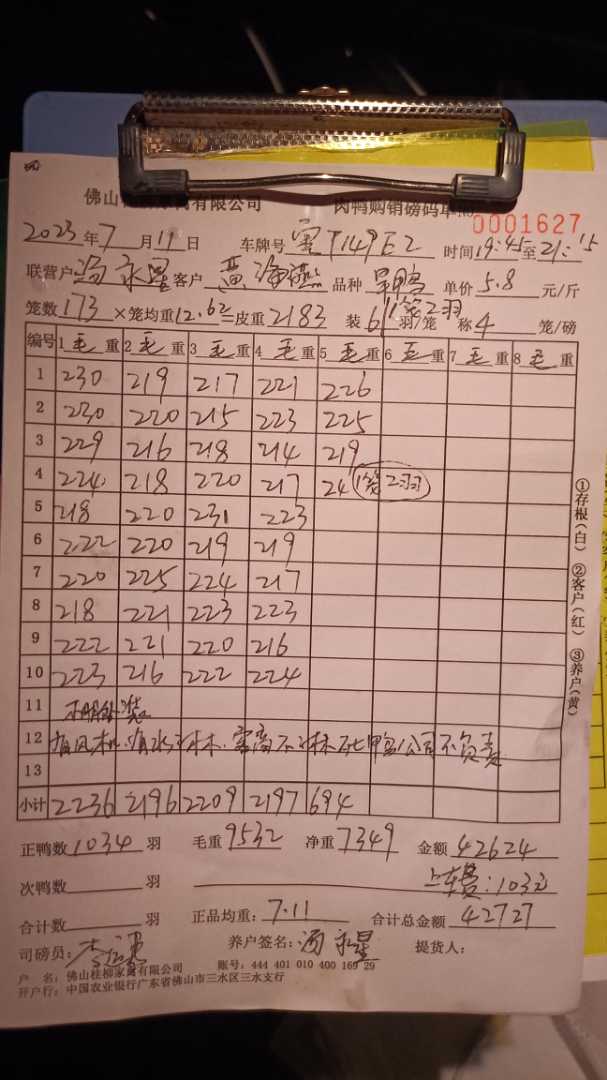 佛山 有限公司 肉鸭购销磅码单
0001627
2023年7月19日 车牌号 时间19:45至21:15
联营户汤永星客户黄海燕 品种 单价5.8元/斤
笼数173×笼均重12.62=皮重2183 装6羽/笼 称4笼/磅
1笼2羽
编号 1毛重 2毛重 3毛重 4毛重 5毛重 6毛重 7毛重 8毛重
1 230 219 217 221 226
2 230 220 215 223 225
3 229 216 218 214 219
4 224 218 220 217 24 1笼2羽
5 218 220 231 223
6 222 220 219 219
7 220 225 224 217
8 218 221 223 223
9 222 221 220 216
10 223 216 222 224
11
12 有风机
13
小计 2236 2196 2209 2197 694
正鸭数1034羽 毛重9532 净重7349 金额42624
次鸭数 羽 上车费:103元
合计数 羽 正品均重:7.11 合计总金额42727
司磅员: 养户签名:汤永星 提货人:
户 名:佛山桂柳家禽有限公司 账号:444 401 010 400 169 29
开户行:中国农业银行广东省佛山市三水区三水支行
①存根(白) ②客户(红) ③养户(黄)